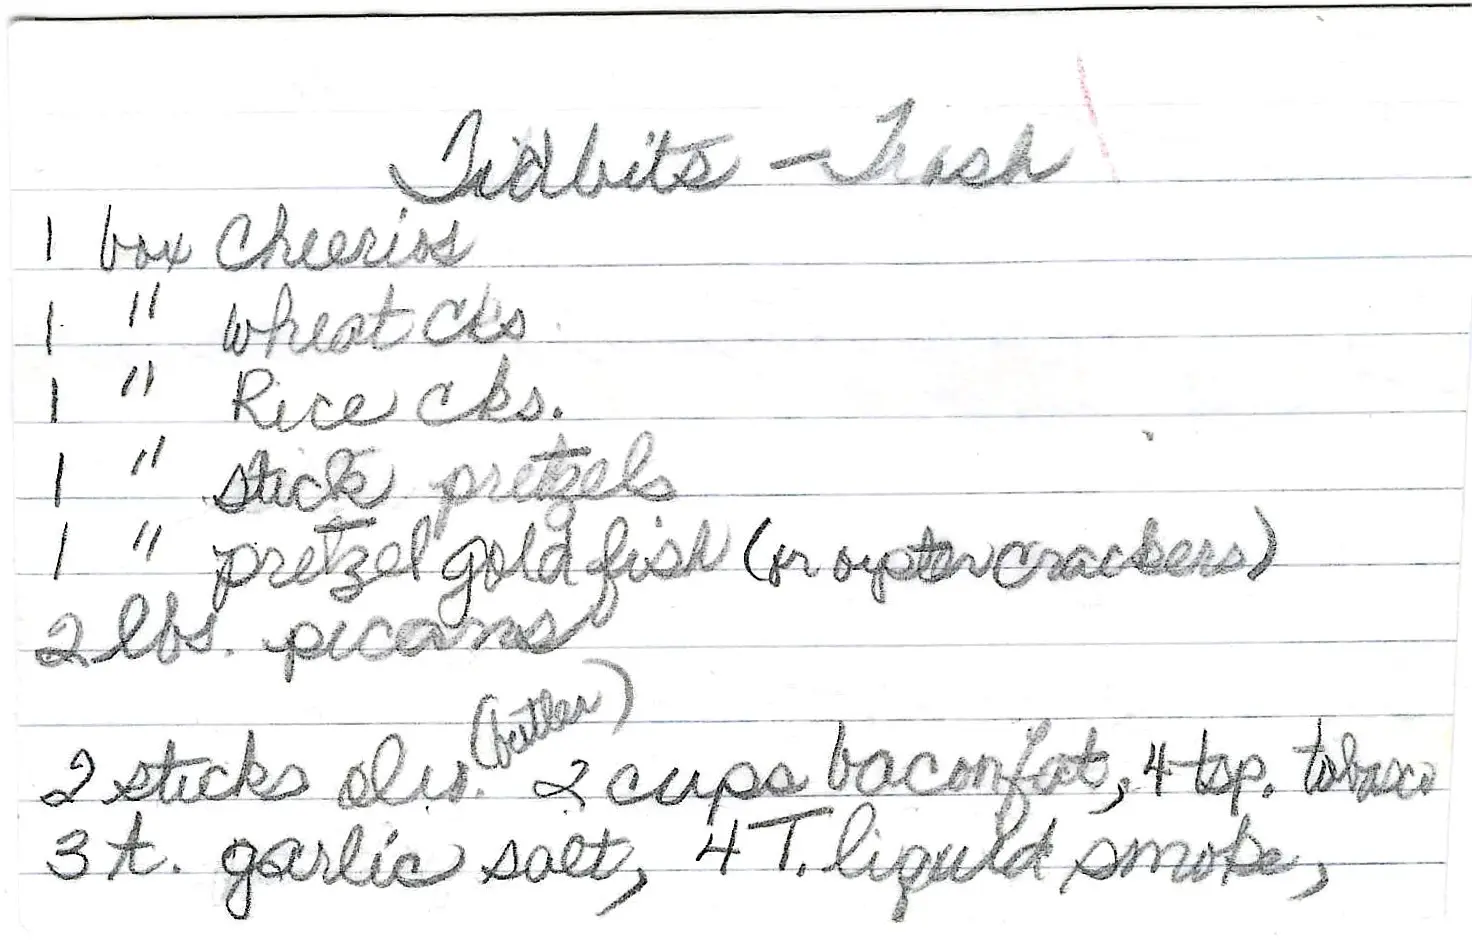 Tidbits - Trash
1 box Cheerios
1 " wheat cks.
1 " Rice cks.
1 " stick pretzels
1 " pretzel gold fish (or oyster crackers)
2 lbs. picans
(butter)
2 sticks oleo. 2 cups bacon fat, 4 tsp. tobasco
3 t. garlic salt, 4 T. liquid smoke,